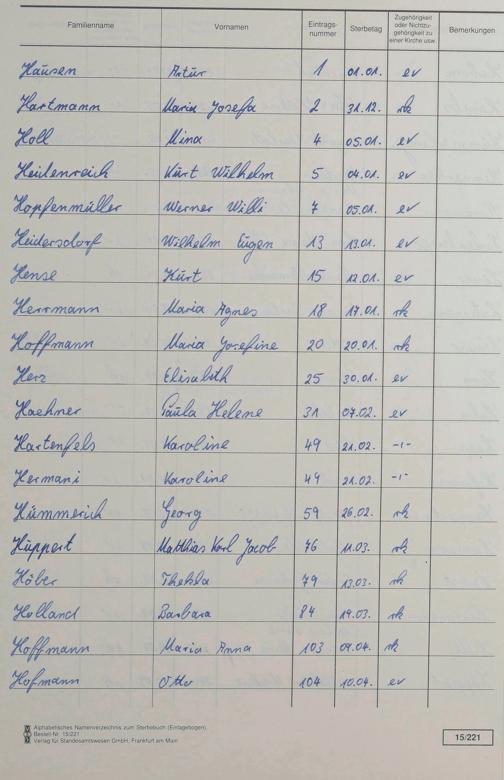 Familienname Vornamen Eintrags-nummer Sterbetag Zugehörigkeit oder Nichtzu-gehörigkeit zu einer Kirche usw. Bemerkungen
Häusen Artur 1 01.01. ev
Hartmann Maria Josefa 2 31.12. rk
Holl Mina 4 05.01. ev
Heidenreich Kurt Wilhelm 5 04.01. ev
Hopfenmüller Werner Willi 7 05.01. ev
Heidersdorf Wilhelm Eugen 13 13.01. ev
Hense Kurt 15 12.01. ev
Herrmann Maria Agnes 18 17.01. rk
Hoffmann Maria Josefine 20 20.01. rk
Herz Elisabeth 25 30.01. ev
Haehner Paula Helene 31 07.02. ev
Hartenfels Karoline 49 21.02. -ı-
Hermani Karoline 49 21.02. -ı-
Hümmerich Georg 59 26.02. rk
Huppert Matthias Karl Jacob 76 11.03. rk
Höber Thekla 79 13.03. rk
Holland Barbara 84 19.03. rk
Hoffmann Maria Anna 103 09.04. rk
Hofmann Otto 104 10.04. ev
Alphabetisches Namenverzeichnis zum Sterbebuch (Einlagebogen).
Bestell-Nr. 15/221
Verlag für Standesamtswesen GmbH, Frankfurt am Main
15/221